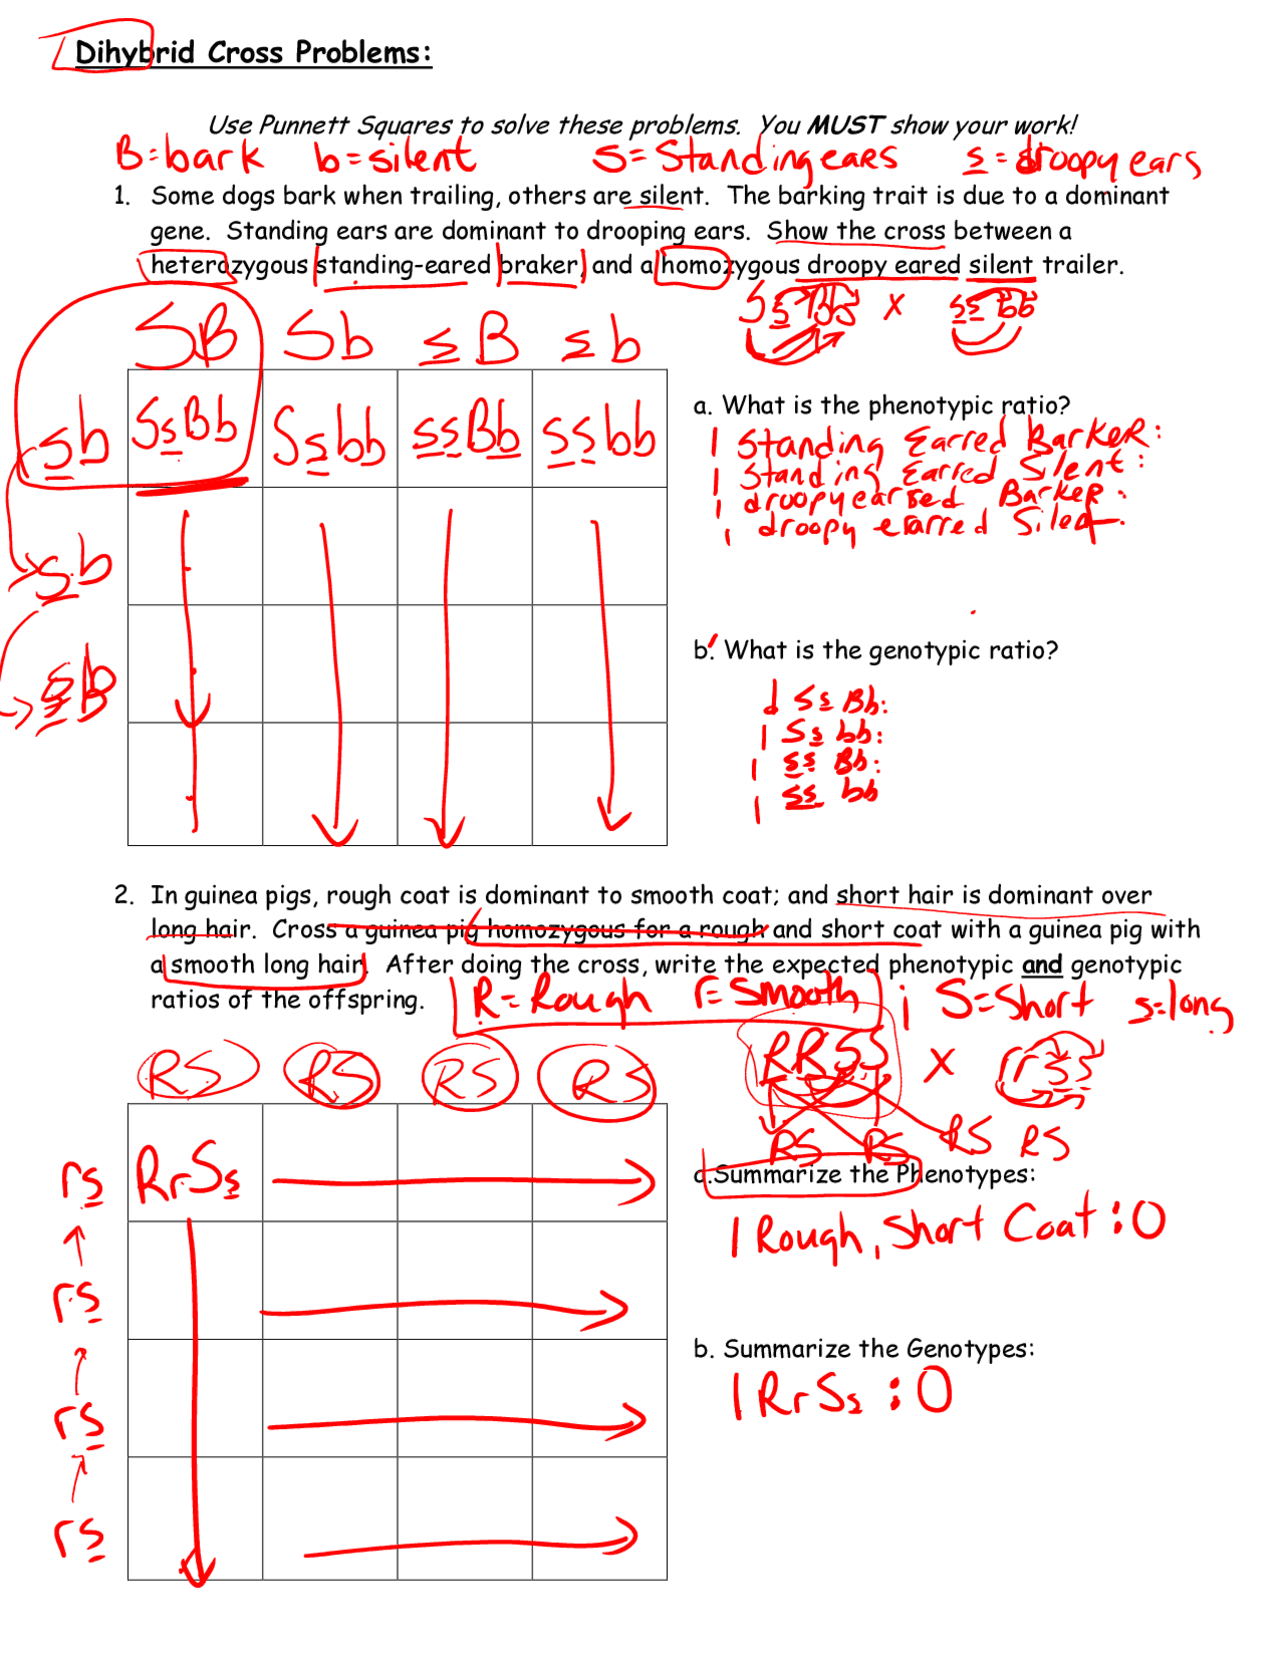 Dihybrid Cross Problems:
Use Punnett Squares to solve these problems. You MUST show your work!
B=bark b=silent S=Standing ears s=droopy ears
1. Some dogs bark when trailing, others are silent. The barking trait is due to a dominant
gene. Standing ears are dominant to drooping ears. Show the cross between a
heterozygous standing-eared braker, and a homozygous droopy eared silent trailer.
SsBb x ssbb
SB Sb sB sb
sb SsBb Ssbb ssBb ssbb
sb
sB
a. What is the phenotypic ratio?
1 Standing Earred Barker:
1 Standing Earred Silent:
1 droopy earred Barker:
1 droopy earred Silent.
b. What is the genotypic ratio?
1 Ss Bb:
1 Ss bb:
1 ss Bb:
1 ss bb
2. In guinea pigs, rough coat is dominant to smooth coat; and short hair is dominant over
long hair. Cross a guinea pig homozygous for a rough and short coat with a guinea pig with
a smooth long hair. After doing the cross, write the expected phenotypic and genotypic
ratios of the offspring.
R=Rough r=Smooth ; S=Short s=long
RRSS x rrss
RS RS RS RS
RS RS RS RS
rs RrSs
rs
rs
rs
Summarize the Phenotypes:
1 Rough, Short Coat : 0
b. Summarize the Genotypes:
1 RrSs : 0